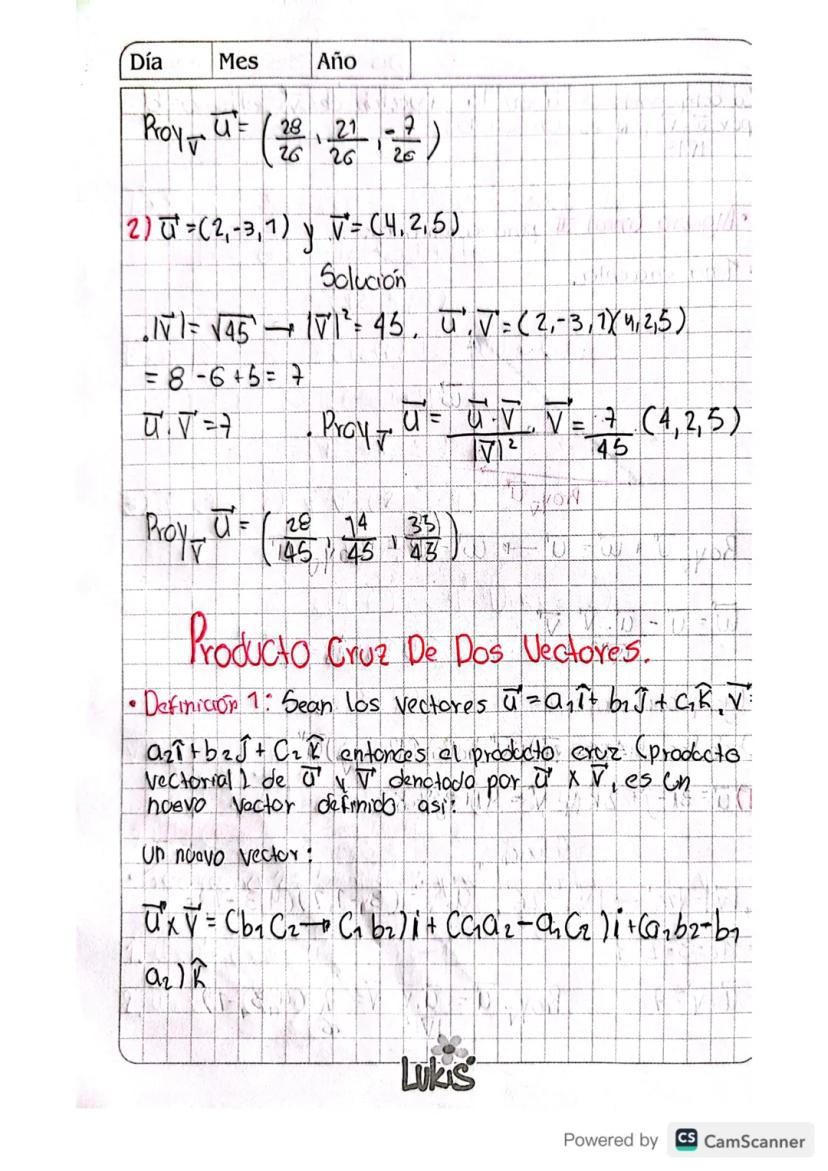 Día Mes Año
Proy_v⃗ u⃗ = (28/26, 21/26, -7/26)
2) u⃗ = (2,-3,1) y v⃗ = (4,2,5)
Solución
. |v⃗| = √45 → |v⃗|² = 45. u⃗.v⃗ = (2,-3,1)(4,2,5)
= 8 - 6 + 5 = 7
u⃗.v⃗ = 7 . Proy_v⃗ u⃗ = u⃗.v⃗/|v⃗|² . v⃗ = 7/45 (4,2,5)
Proy_v⃗ u⃗ = (28/45, 14/45, 35/45)
Producto Cruz De Dos Vectores.
• Definición 1: Sean los vectores u⃗ = a₁î + b₁ĵ + c₁k̂, v⃗ =
a₂î + b₂ĵ + C₂k̂ entonces el producto cruz (producto
vectorial) de u⃗ y v⃗ denotado por u⃗ x v⃗, es un
nuevo vector definido así:
un nuevo vector:
u⃗ x v⃗ = (b₁C₂ → C₁b₂)i + (C₁a₂ - a₁C₂)i + (a₁b₂ - b₁
a₂)k̂
Lukis
Powered by CS CamScanner